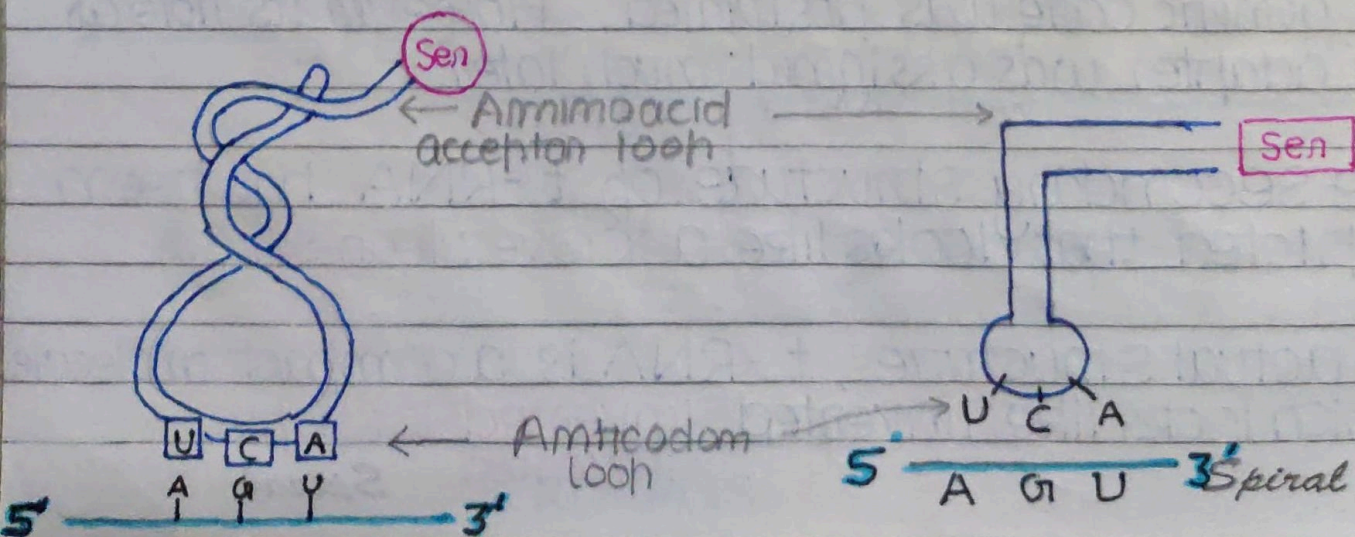 Ser
← Aminoacid →
acceptor loop
Ser
U C A
← Anticodon →
loop
A G U
5' 3'
U C A
5' 3'
A G U
Spiral